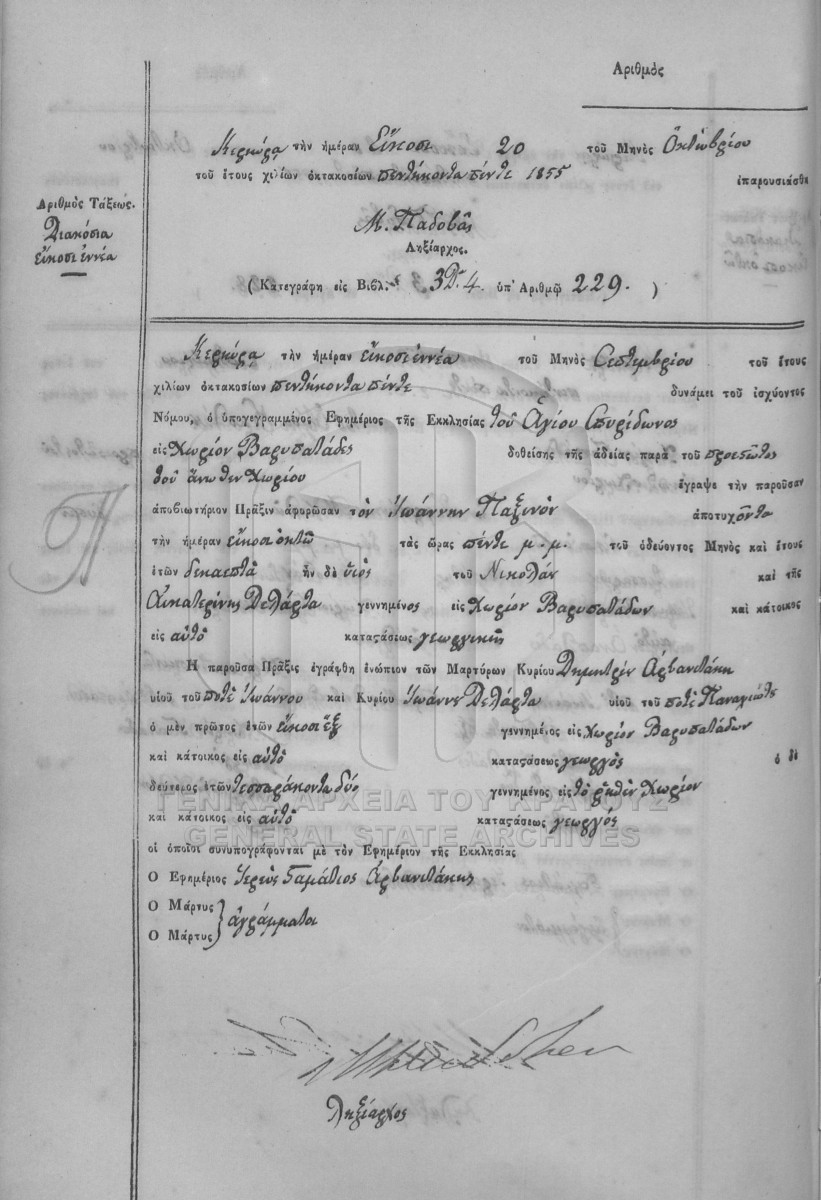 Ἀριθμὸς
Κερκύρα τὴν ἡμέραν Εἴκοσι 20 τοῦ Μηνὸς Ὀκτωβρίου
τοῦ ἔτους χιλίων ὀκτακοσίων πεντήκοντα πέντε 1855 ἐπαρουσιάσθη
Ἀριθμὸς Τάξεως.
Διακόσια
εἴκοσι ἐννέα
Μ. Παδοβᾶς
Ληξίαρχος.
( Κατεγράφη εἰς Βιβλ. 3 4. ὑπ' Ἀριθμῷ 229. )
Κερκύρα τὴν ἡμέραν εἴκοσι ἐννέα τοῦ Μηνὸς Σεπτεμβρίου τοῦ ἔτους
χιλίων ὀκτακοσίων πεντήκοντα πέντε δυνάμει τοῦ ἰσχύοντος
Νόμου, ὁ ὑπογεγραμμένος Ἐφημέριος τῆς Ἐκκλησίας τοῦ Ἁγίου Σπυρίδωνος
εἰς Χωρίον Βαρυπατάδες δοθείσης τῆς ἀδείας παρὰ τοῦ προεσῶτος
τοῦ ἄνωθεν Χωρίου ἔγραψε τὴν παροῦσαν
ἀποβιωτήριον Πρᾶξιν ἀφορῶσαν τὸν Ἰωάννην Παξινὸν ἀποτυχόντα
τὴν ἡμέραν εἴκοσι ὀκτὼ τὰς ὥρας πέντε μ. μ. τοῦ ὁδεύοντος Μηνὸς καὶ ἔτους
ἐτῶν δεκαεπτὰ ἦν δὲ ὑιὸς τοῦ Νικολάου καὶ τῆς
Αἰκατερίνης Δελάρτα γεννημένος εἰς Χωρίον Βαρυπατάδων καὶ κάτοικος
εἰς αὐτὸ καταςάσεως γεωργικῆς
Ἡ παροῦσα Πρᾶξις ἐγράφθη ἐνώπιον τῶν Μαρτύρων Κυρίου Δημητρίου Ἀρβανιτάκη
υἱοῦ τοῦ ποτὲ Ἰωάννου καὶ Κυρίου Ἰωάννου Δελάρτα υἱοῦ τοῦ ποτὲ Παναγιώτου
ὁ μὲν πρῶτος ἐτῶν εἴκοσι ἓξ γεννημένος εἰς Χωρίον Βαρυπατάδων
καὶ κάτοικος εἰς αὐτὸ καταςάσεως γεωργὸς ὁ δὲ
δεύτερος ἐτῶν τεσσαράκοντα δύο γεννημένος εἰς τὸ ῥηθὲν Χωρίον
καὶ κάτοικος εἰς αὐτὸ καταςάσεως γεωργός
ΓΕΝΙΚΑ ΑΡΧΕΙΑ ΤΟΥ ΚΡΑΤΟΥΣ
GENERAL STATE ARCHIVES
οἱ ὁποῖοι συνυπογράφονται μὲ τὸν Ἐφημέριον τῆς Ἐκκλησίας
Ὁ Ἐφημέριος Ἱερεὺς Σταμάτιος Ἀρβανιτάκης
Ὁ Μάρτυς
ἀγράμματοι
Ὁ Μάρτυς
Ληξίαρχος